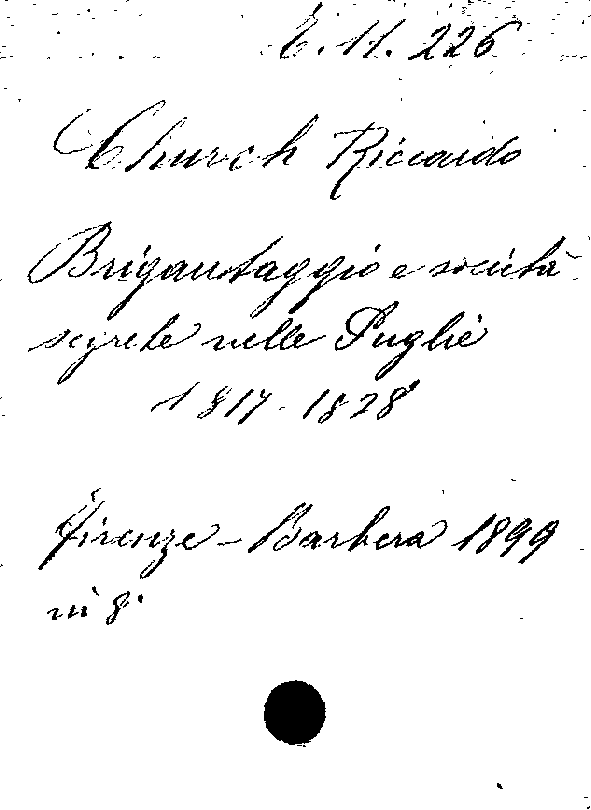 E. 11. 226
Church Riccardo
Brigantaggio e società
segrete nelle Puglie
1817-1828
Firenze - Barbera 1899
in 8°